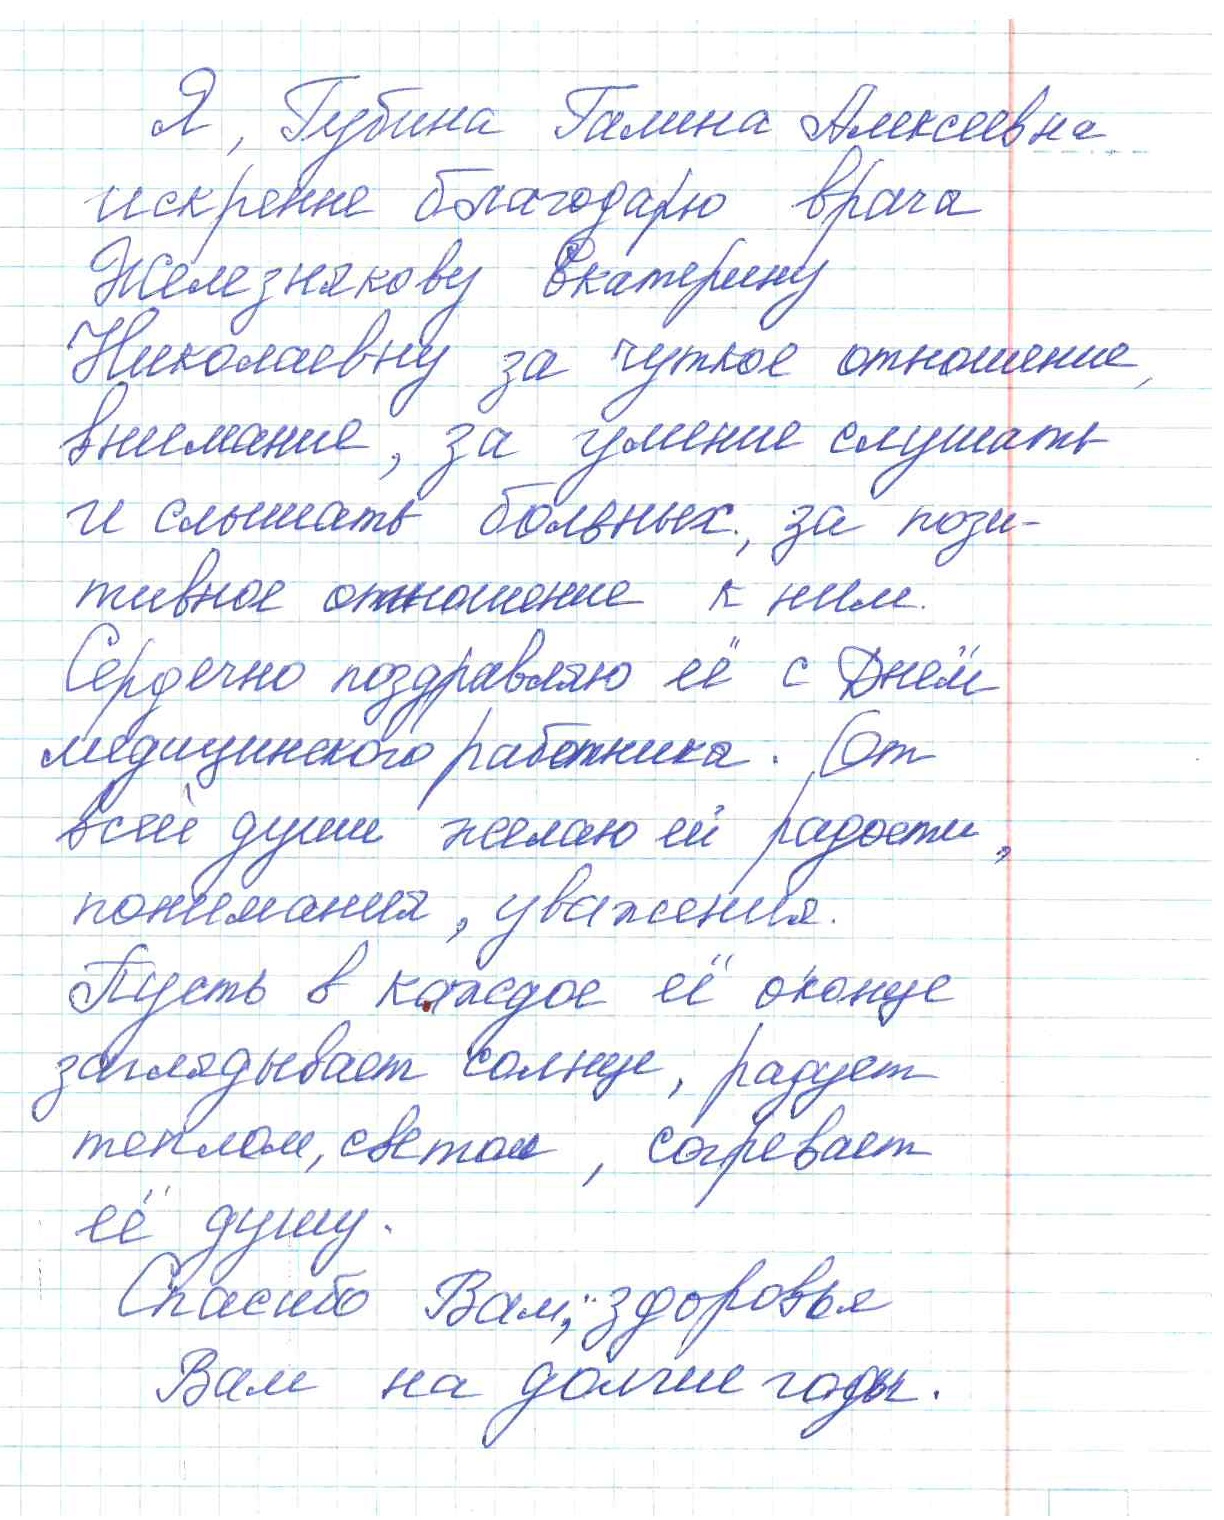 Я, Губина Галина Алексеевна
искренне благодарю врача
Железнякову Екатерину
Николаевну за чуткое отношение,
внимание, за умение слушать
и слышать больных, за пози-
тивное отношение к ним.
Сердечно поздравляю её с Днём
медицинского работника. От
всей души желаю ей радости,
понимания, уважения.
Пусть в каждое её оконце
заглядывает солнце, радует
теплом, светом, согревает
её душу.
Спасибо Вам, здоровья
Вам на долгие годы.